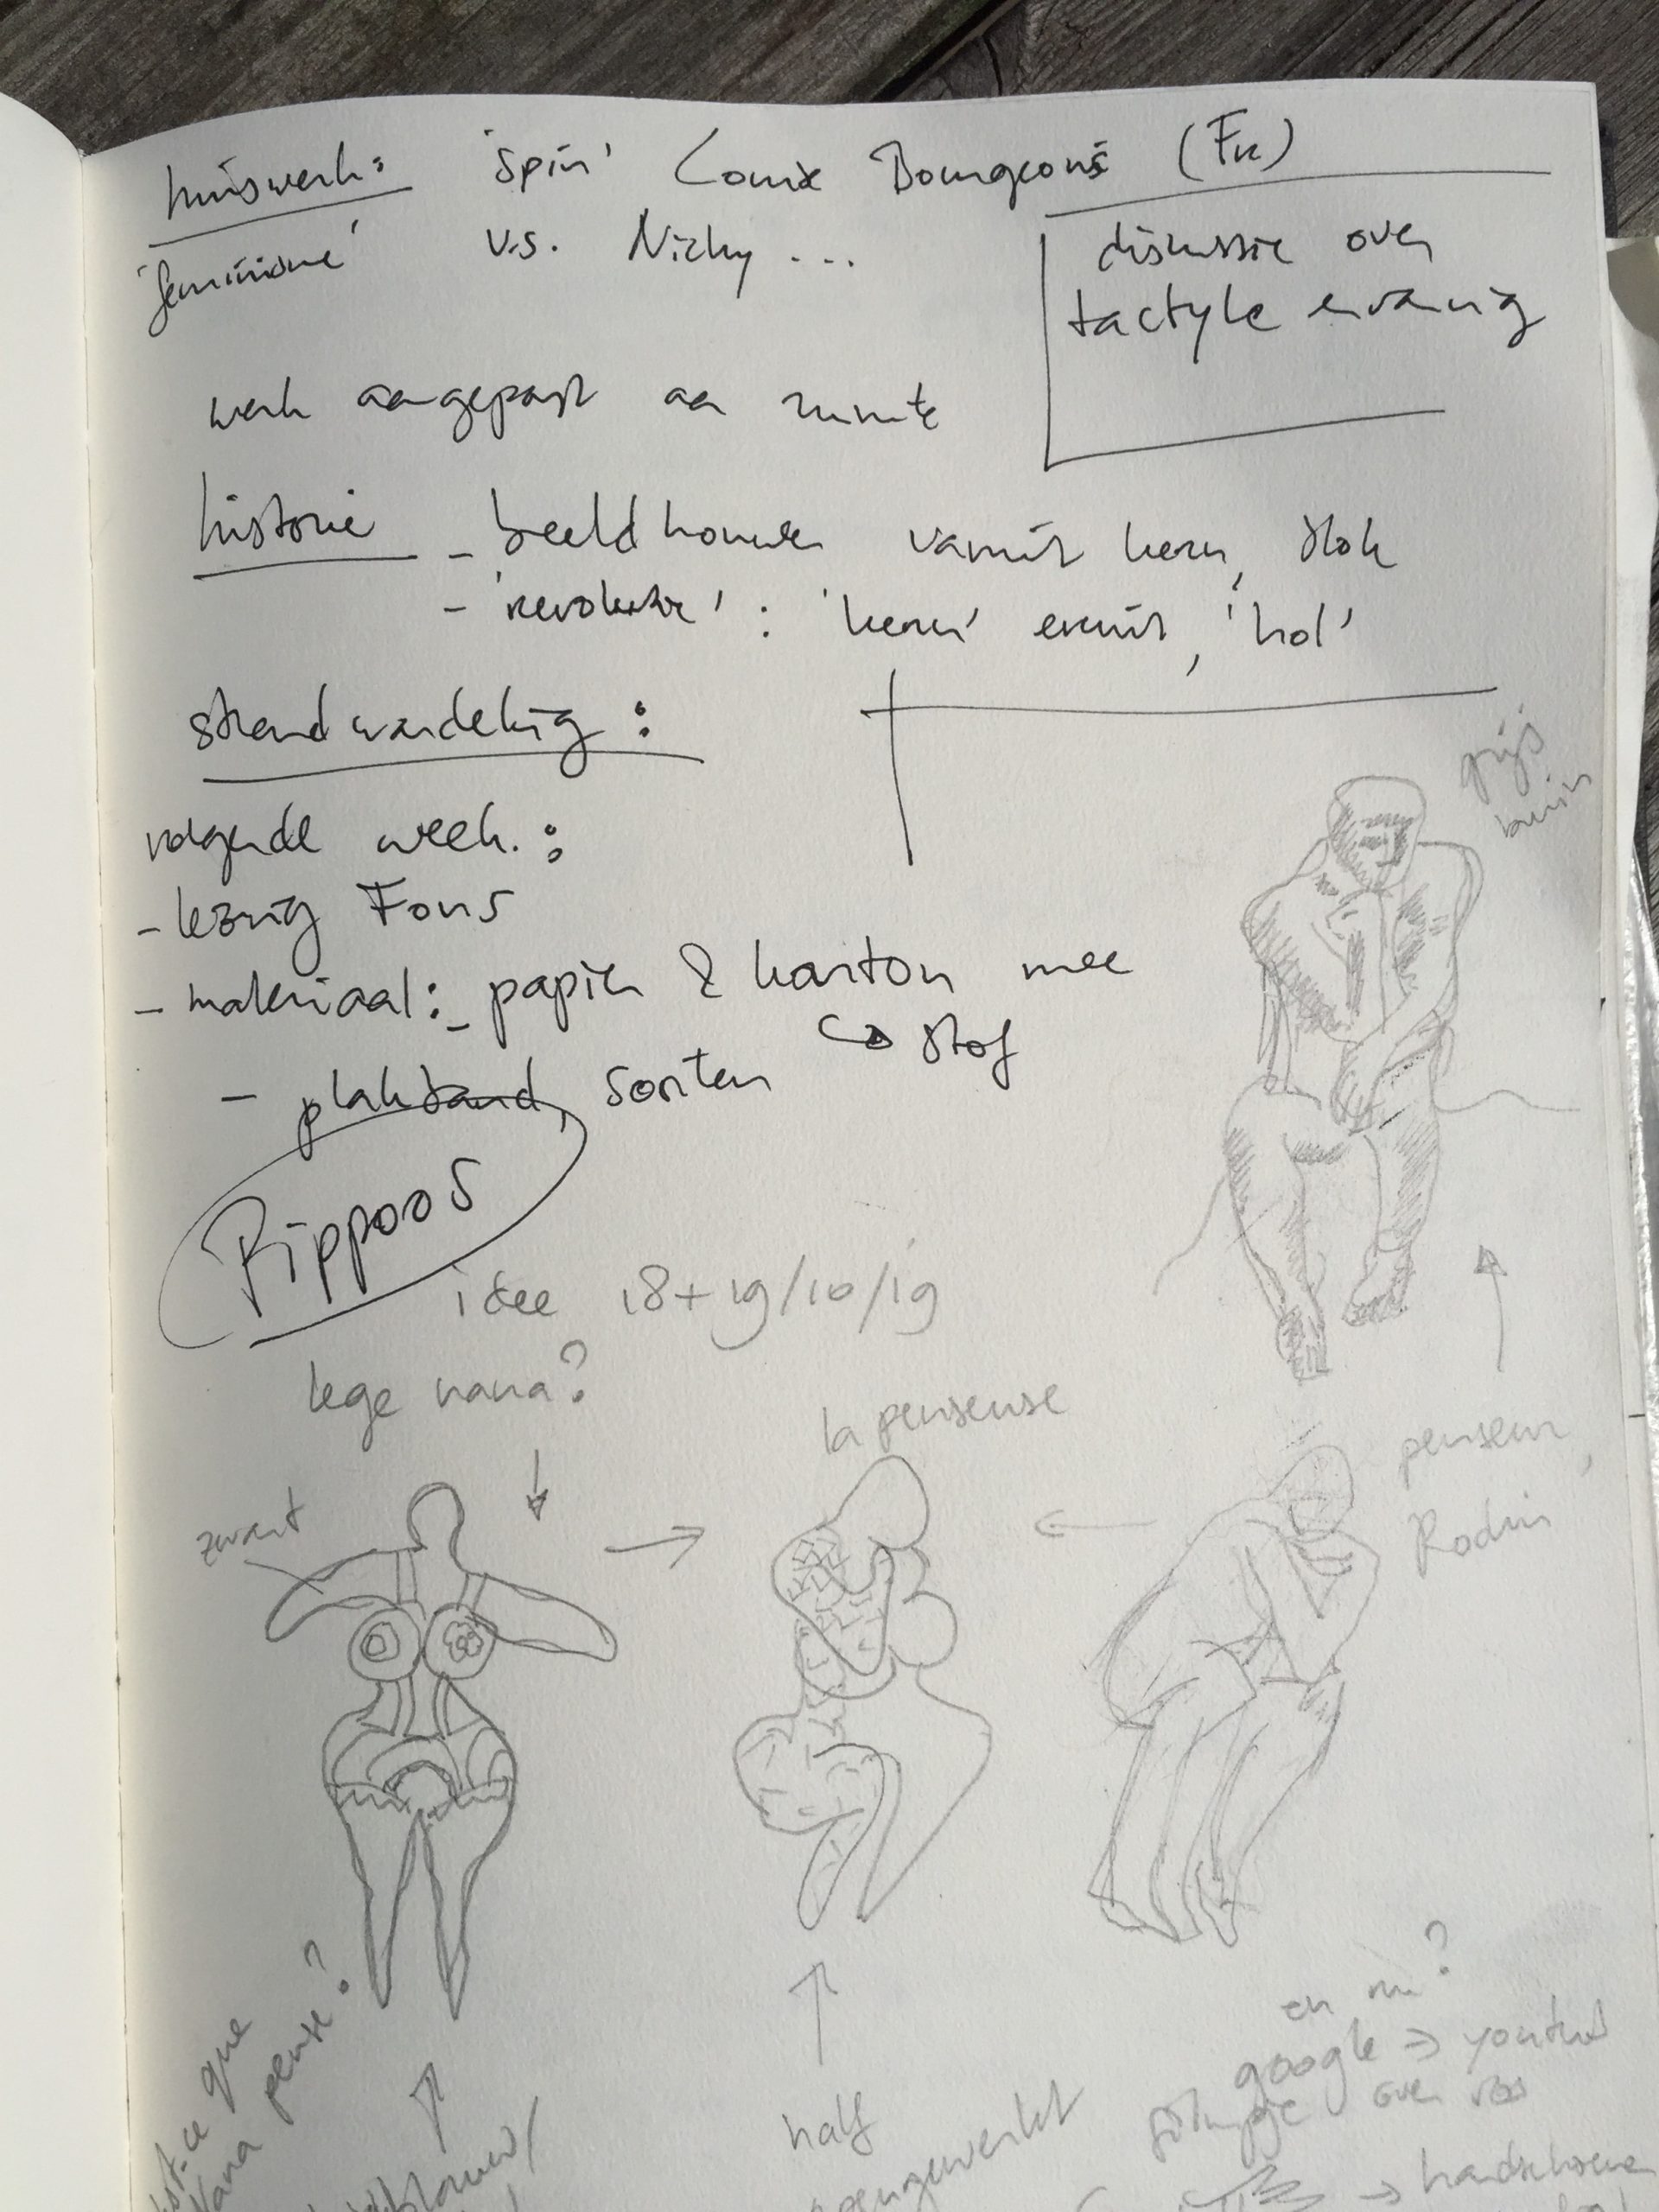 huiswerk: 'Spin' Louise Bourgeois (Fr)
'feminisme' v.s. Nicky ...
discussie over
tactyle ervaring
werk aangepast aan ruimte
historie - beeldhouwen vanuit kern, blok
- 'revolutie' : 'kern' eruit, 'hol'
strandwandeling :
volgende week :
- lezing Fons
- materiaal : - papier & karton mee
↳ stof
- plakband, soorten
Pipoos
grijs
bruin
idee 18+19/10/19
lege nana?
la penseuse
penseur,
Rodin
zwart
est-ce que
Nana pense?
half
en nu?
google → youtube
filmpje over
→ handschoenen